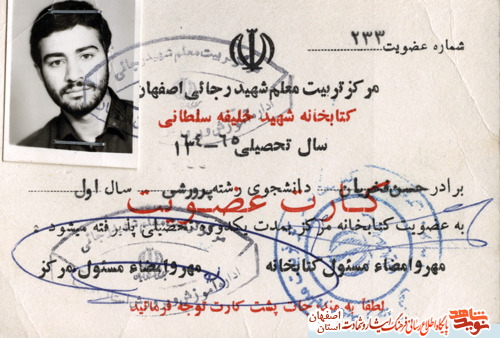 شماره عضویت: ۲۳۳
مرکز تربیت معلم شهید رجائی اصفهان
کتابخانه شهید خلیفه سلطانی
سال تحصیلی ۶۵-۱۳۶۴
برادر حسن فخریان دانشجوی رشته پرورشی سال اول
کارت عضویت
به عضویت کتابخانه مرکز بمدت یکدوره تحصیلی پذیرفته میشود
مهر و امضاء مسئول کتابخانه
مهر و امضاء مسئول مرکز
لطفا به مندرجات پشت کارت توجه فرمائید
نوید شاهد
اصفهان
پایگاه اطلاع رسانی فرهنگ ایثار و شهادت استان